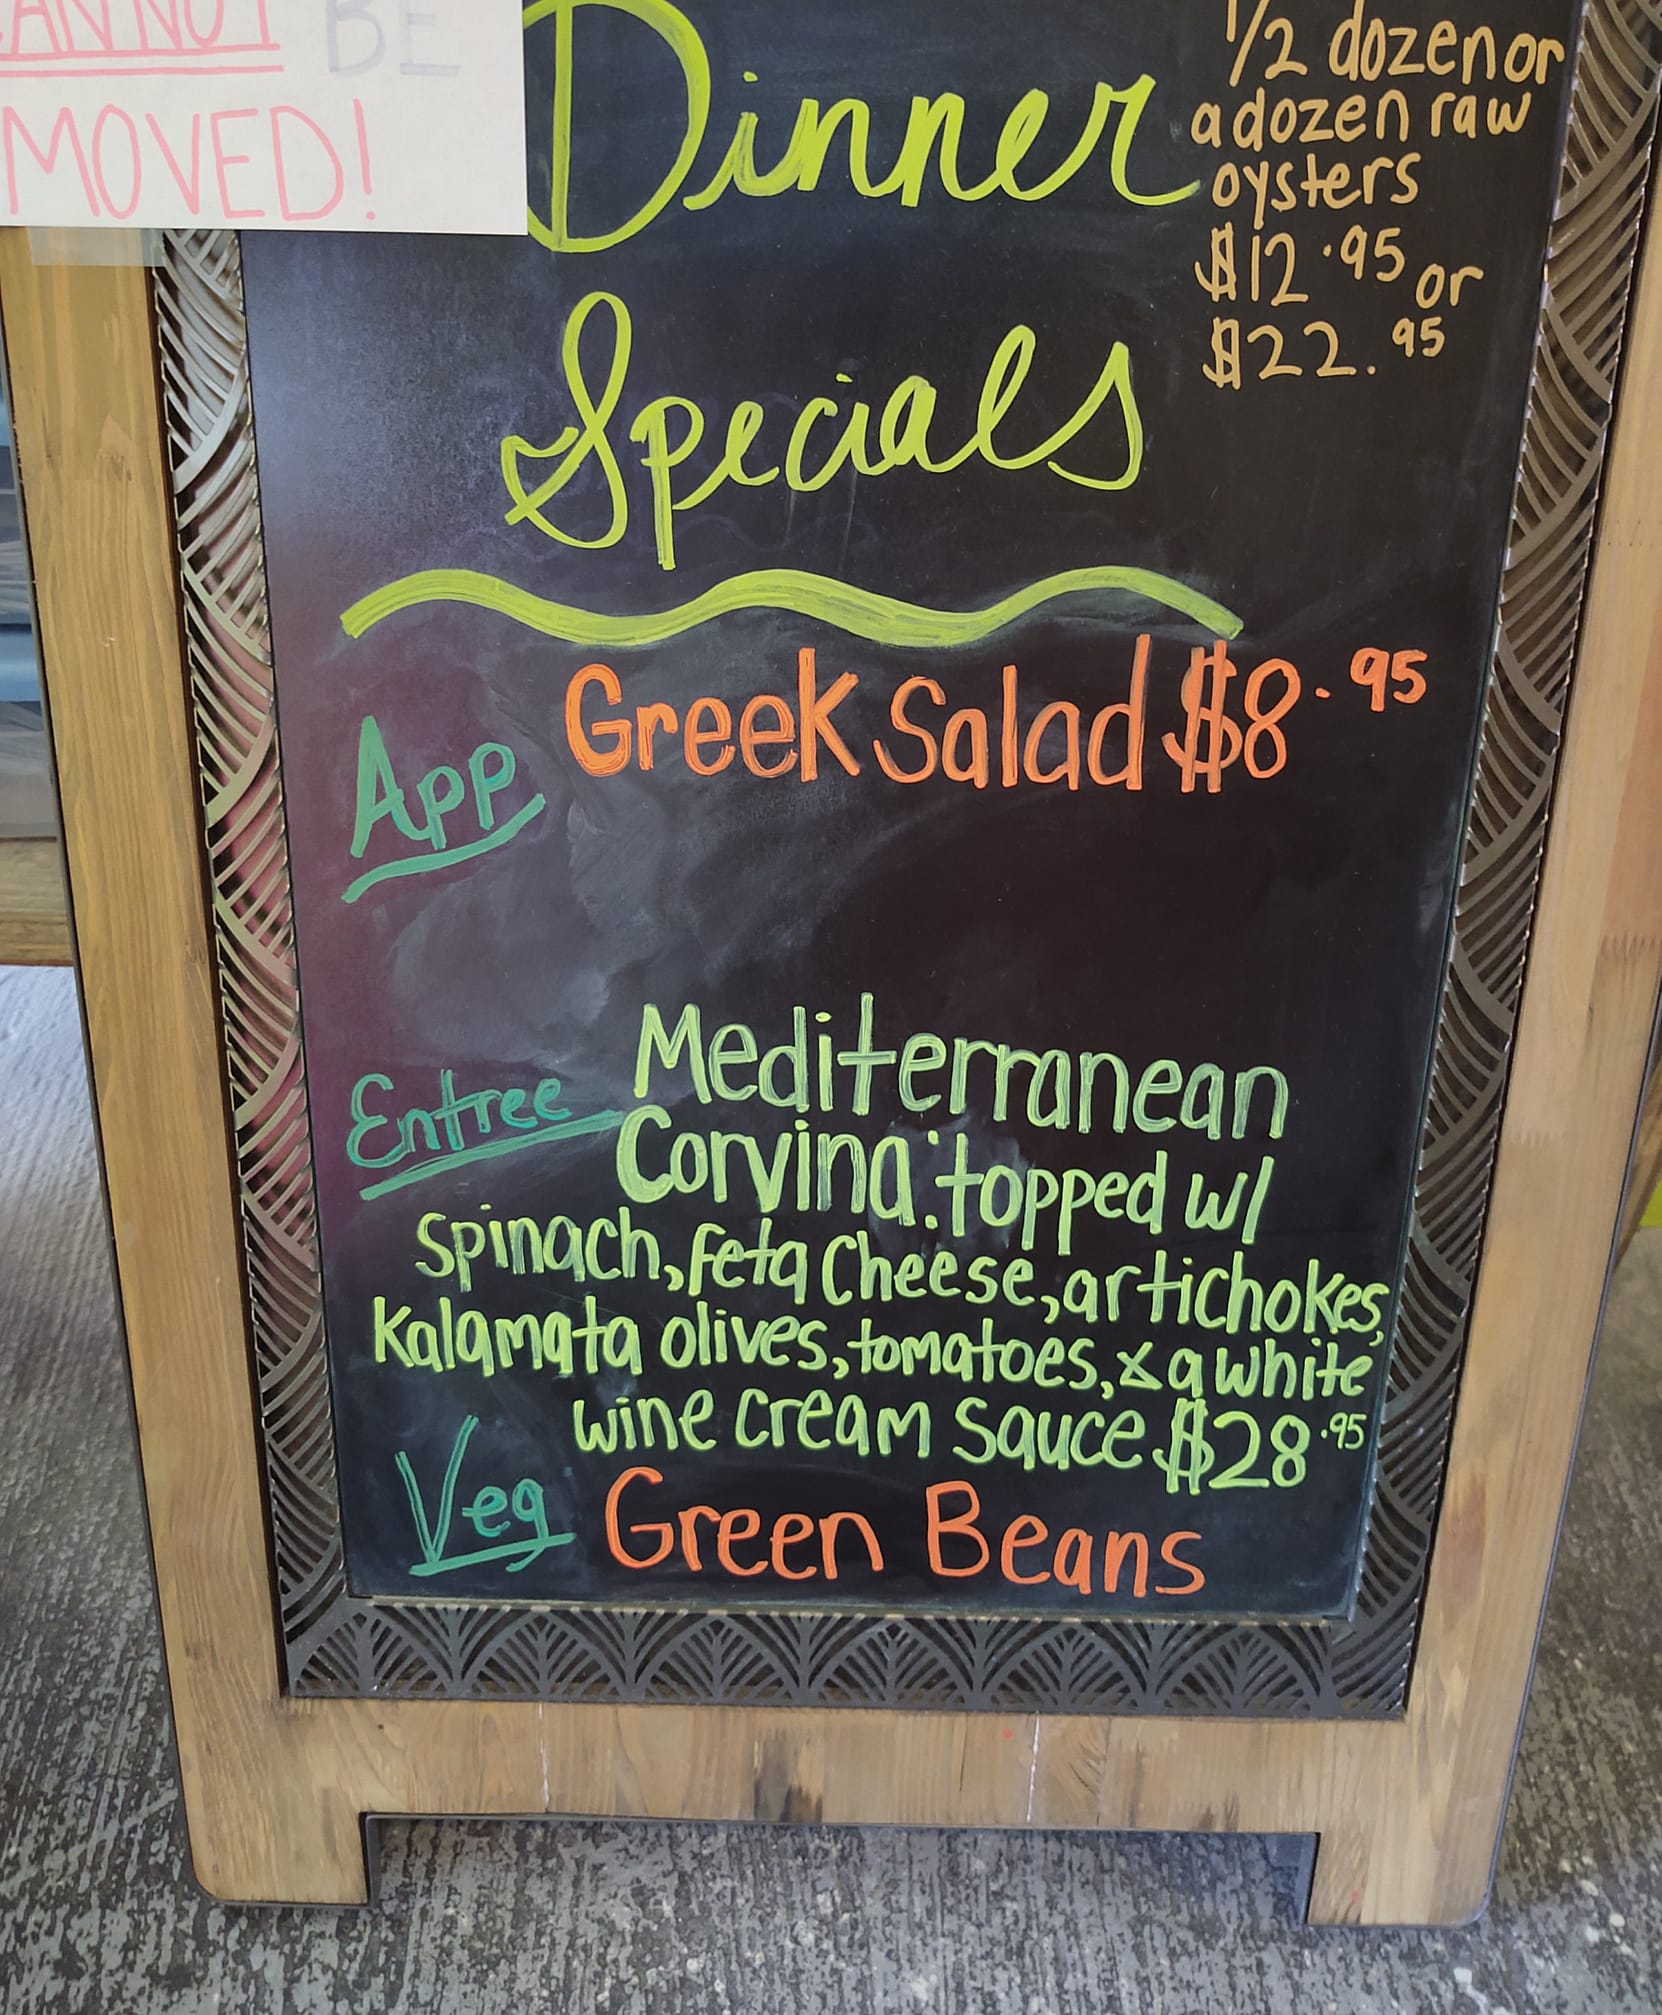 CANNOT BE
MOVED!
Dinner
Specials
1/2 dozen or
a dozen raw
oysters
$12.95 or
$22.95
App
Greek Salad $8.95
Entree
Mediterranean
Corvina: topped w/
Spinach, Feta Cheese, artichokes,
Kalamata olives, tomatoes, & a white
wine cream sauce $28.95
Veg
Green Beans